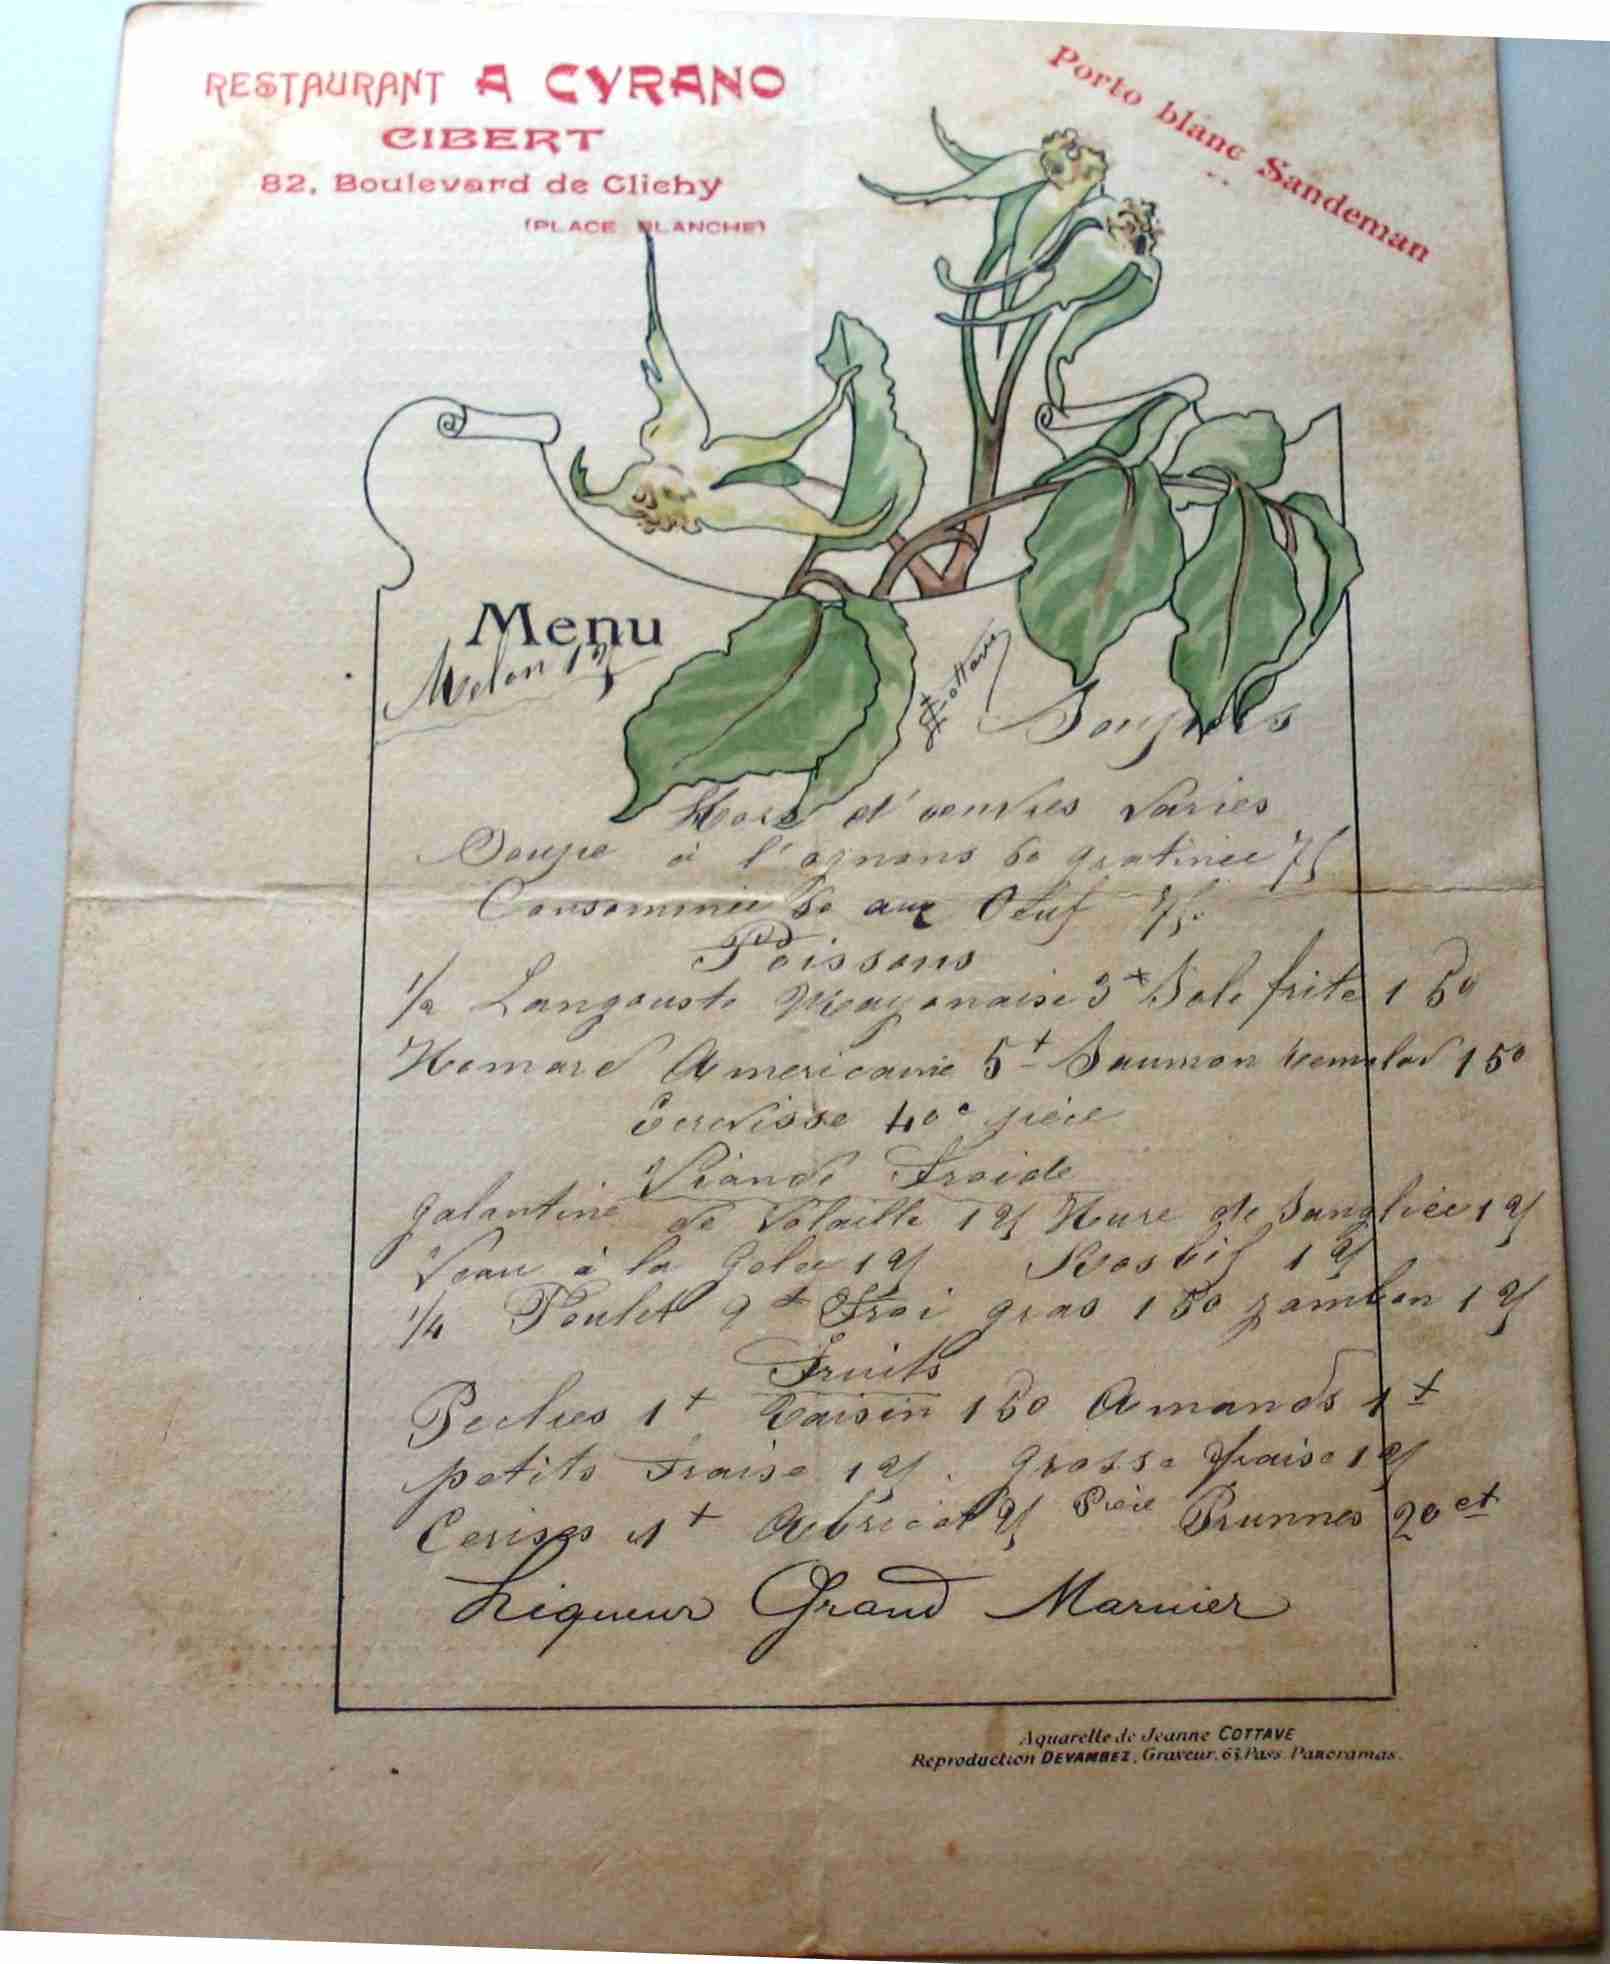 RESTAURANT A CYRANO
CIBERT
82, Boulevard de Clichy
(PLACE BLANCHE)
Porto blanc Sandeman
Menu
Melon 1 25
Cottave
Soupers
Hors d'oeuvres Varies
Soupe à l'ognons 60 gratinee 75
Consommée 60 aux Oeuf
Poissons
1/2 Langouste Mayonaise 3 Sole frite 1 50
Homard Americaine 5 Saumon remolad 1 50
Ecrevisse 40c pièce
Viande Froide
galantine de Volaille 1 25 Hure de Sangliée 1 25
Veau à la Gelee 1 25 Rosbif 1 25
1/4 Poulet 2 Froi gras 1 50 jambon 1 25
Fruits
Peches 1 raisin 1 50 Amands 1
petits Fraise 1 25 . grosse fraise 1 25
Cerises 1 Abricot 25 Pièce Prunnes 20 ct
Liqueur Grand Marnier
Aquarelle de Jeanne COTTAVE
Reproduction DEVAMBEZ, Graveur, 63, Pass. Panoramas.